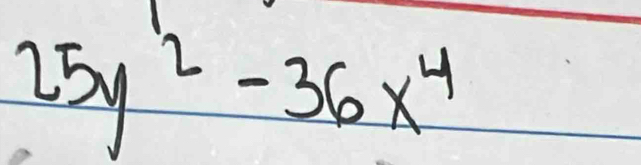 25y² - 36x⁴